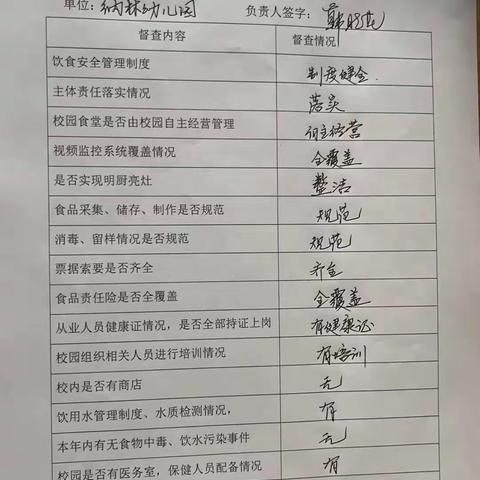 单位：纳林幼儿园 负责人签字：
督查内容 督查情况
饮食安全管理制度 制度健全.
主体责任落实情况 落实
校园食堂是否由校园自主经营管理 自主经营
视频监控系统覆盖情况 全覆盖
是否实现明厨亮灶 整洁
食品采集、储存、制作是否规范 规范
消毒、留样情况是否规范 规范
票据索要是否齐全 齐全
食品责任险是否全覆盖 全覆盖
从业人员健康证情况，是否全部持证上岗 有健康证
校园组织相关人员进行培训情况 有培训
校内是否有商店 无
饮用水管理制度、水质检测情况， 有
本年内有无食物中毒、饮水污染事件 无
校园是否有医务室，保健人员配备情况 有